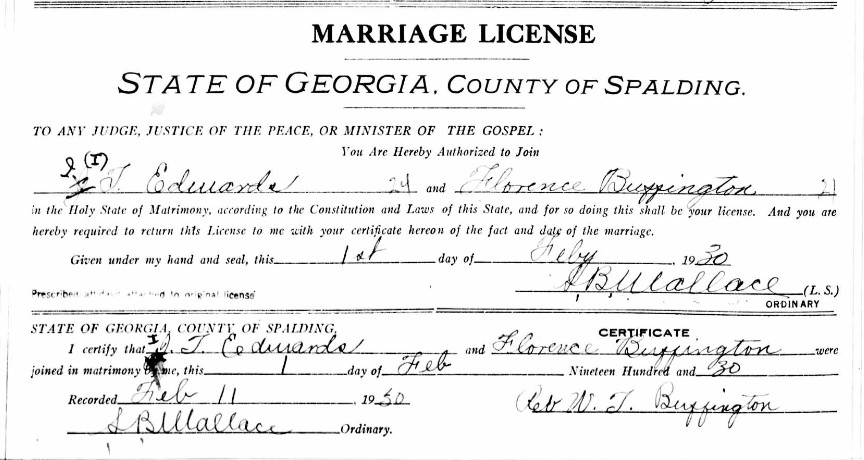 MARRIAGE LICENSE
STATE OF GEORGIA, COUNTY OF SPALDING.
TO ANY JUDGE, JUSTICE OF THE PEACE, OR MINISTER OF THE GOSPEL:
You Are Hereby Authorized to Join
I (I)
T. Edwards 24 and Florence Buffington 21
in the Holy State of Matrimony, according to the Constitution and Laws of this State, and for so doing this shall be your license. And you are
hereby required to return this License to me with your certificate hereon of the fact and date of the marriage.
Given under my hand and seal, this 1st day of Feby, 1930
S B Wallace (L. S.)
Prescribed affidavit attached to original license ORDINARY
STATE OF GEORGIA, COUNTY OF SPALDING, CERTIFICATE
I certify that I. T. Edwards and Florence Buffington were
joined in matrimony by me, this 1 day of Feb Nineteen Hundred and 30
Recorded Feb 11, 1930 Rev W. T. Buffington
S B Wallace Ordinary.